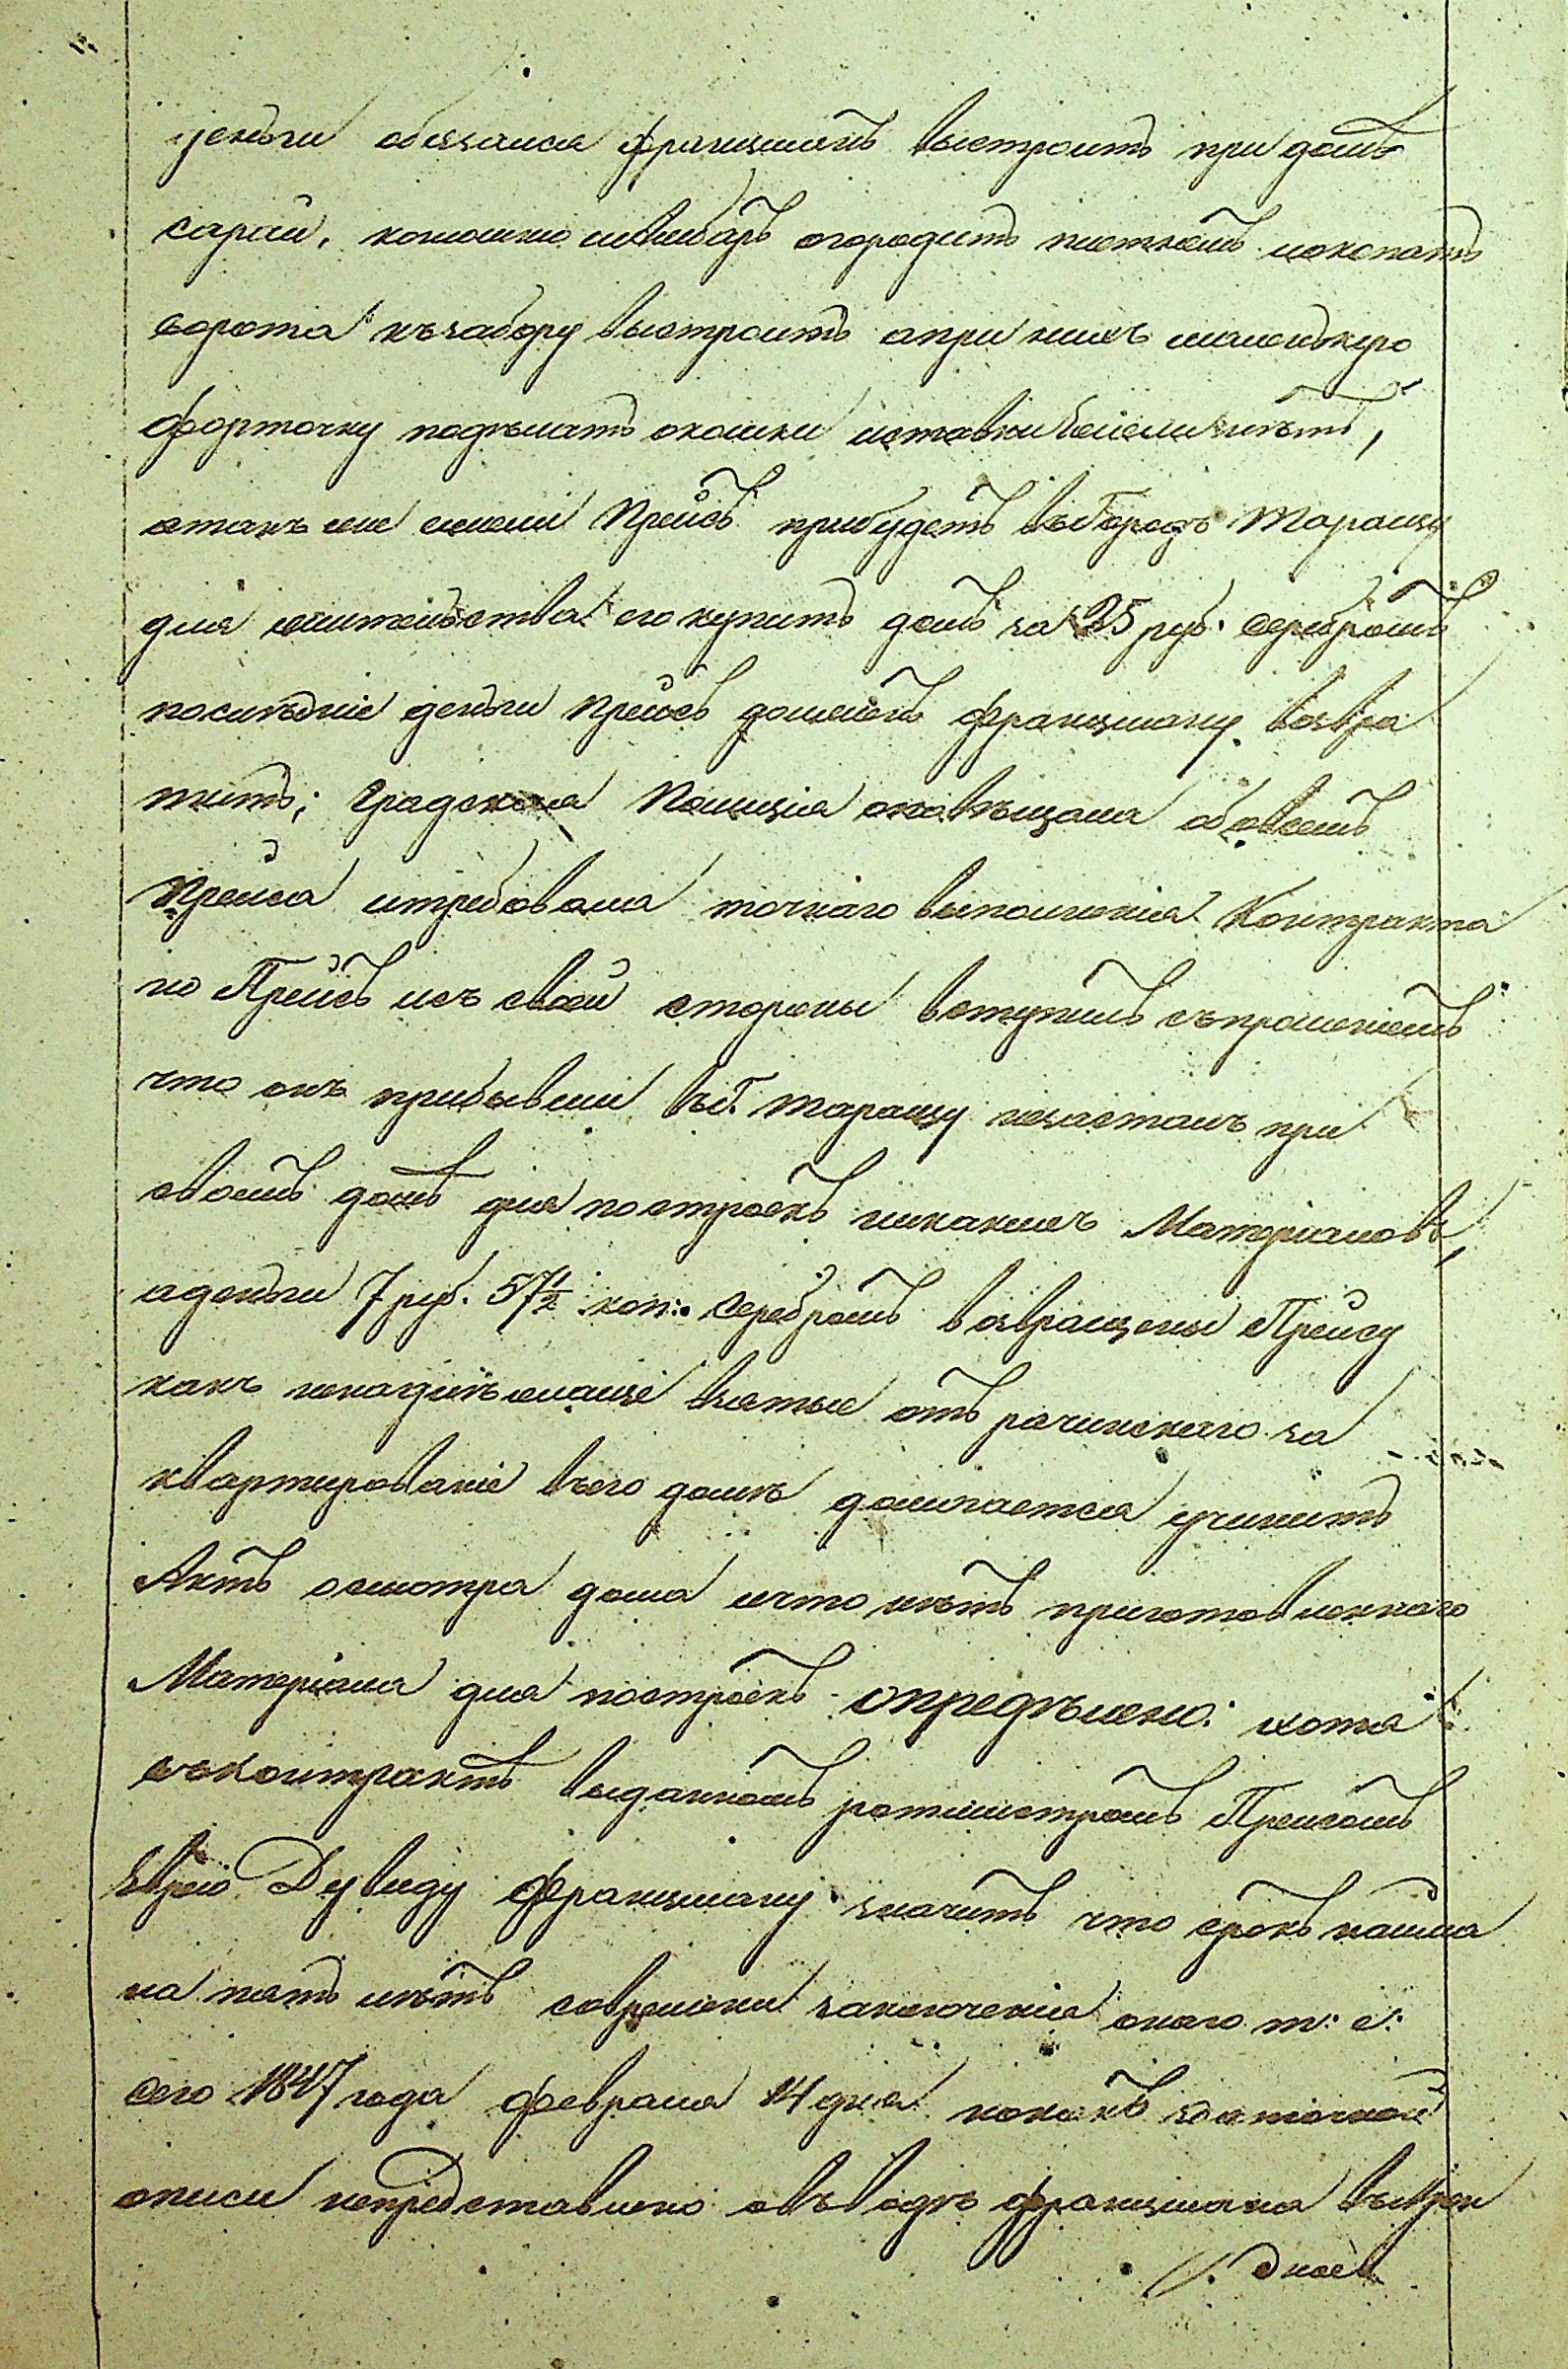 деньги обязался Францманъ выстроить при домѣ
сарай, конюшню и амбаръ огородить плетнемъ и окопать
ворота къ забору выстроить а при нихъ маленькую
форточку подѣлать окошки и ставни
а такъ же ежели Прейсъ прибудетъ въ Городъ Таращу
для жительства его купить домъ за 25 руб. серебромъ
послѣдніе деньги Прейсъ долженъ Францману возвра
тить; Градская Полиція оповѣщала обовсемъ
Прейса и требовала точнаго выполненія Контракта
но Прейсъ и съ своей стороны вступилъ съ прошеніемъ
что онъ прибывши въ Г. Таращу незасталъ при
своемъ домѣ для построекъ никакихъ Матеріаловъ,
а деньги 7 руб. 57½ коп: серебромъ возвращены Прейсу
какъ ненадлежащіе взятые отъ рачинскаго за
квартированіе въ его домѣ домогается учинить
Актъ осмотра дома и что нѣтъ приготовленнаго
Матеріала для построекъ опредѣлено: хотя
въ контрактѣ выданномъ ротмистромъ Прейсомъ
Еврею Дувиду Францману значитъ что срокъ найма
на пять лѣтъ со времени заключенія онаго т: е:
сего 1847 года февраля 14 дня но какъ здаточной
описи непредставлено овъводѣ Францмана въ Прей